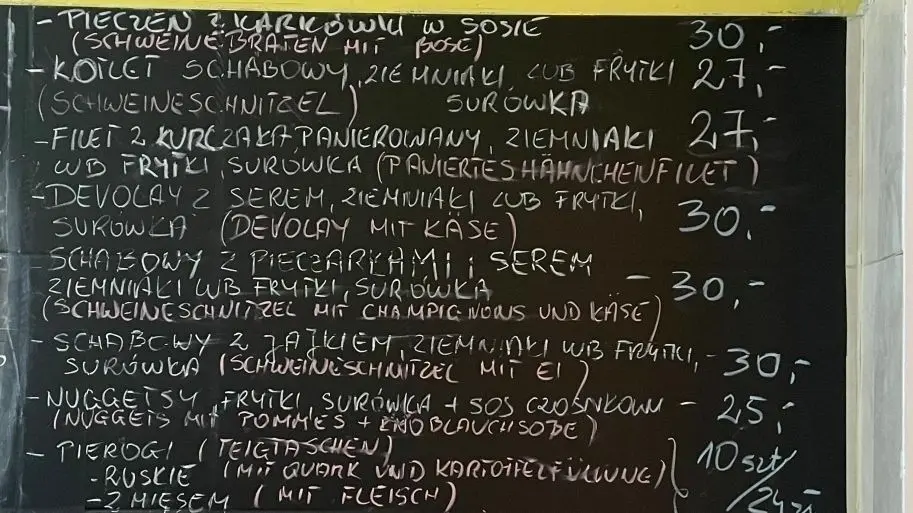 - PIECZEŃ Z KARKÓWKI W SOSIE 30,-
(SCHWEINEBRATEN MIT SOSE)
- KOTLET SCHABOWY, ZIEMNIAKI LUB FRYTKI 27,-
(SCHWEINESCHNITZEL) SURÓWKA
- FILET Z KURCZAKA, PANIEROWANY, ZIEMNIAKI 27,-
LUB FRYTKI, SURÓWKA (PANIERTES HÄHNCHENFILET)
- DEVOLAY Z SEREM, ZIEMNIAKI LUB FRYTKI,
SURÓWKA (DEVOLAY MIT KÄSE) 30,-
- SCHABOWY Z PIECZARKAMI i SEREM
ZIEMNIAKI LUB FRYTKI, SURÓWKA - 30,-
(SCHWEINESCHNITZEL MIT CHAMPIGNONS UND KÄSE)
- SCHABOWY Z JAJKIEM, ZIEMNIAKI LUB FRYTKI, - 30,-
SURÓWKA (SCHWEINESCHNITZEL MIT EI)
- NUGGETSY, FRYTKI, SURÓWKA + SOS CZOSNKOWY - 25,-
(NUGGETS MIT POMMES + KNOBLAUCHSOßE)
- PIEROGI (TEIGTASCHEN)
- RUSKIE (MIT QUARK UND KARTOFFELFÜLLUNG) 10 szt/
- Z MIĘSEM (MIT FLEISCH) /24 zł